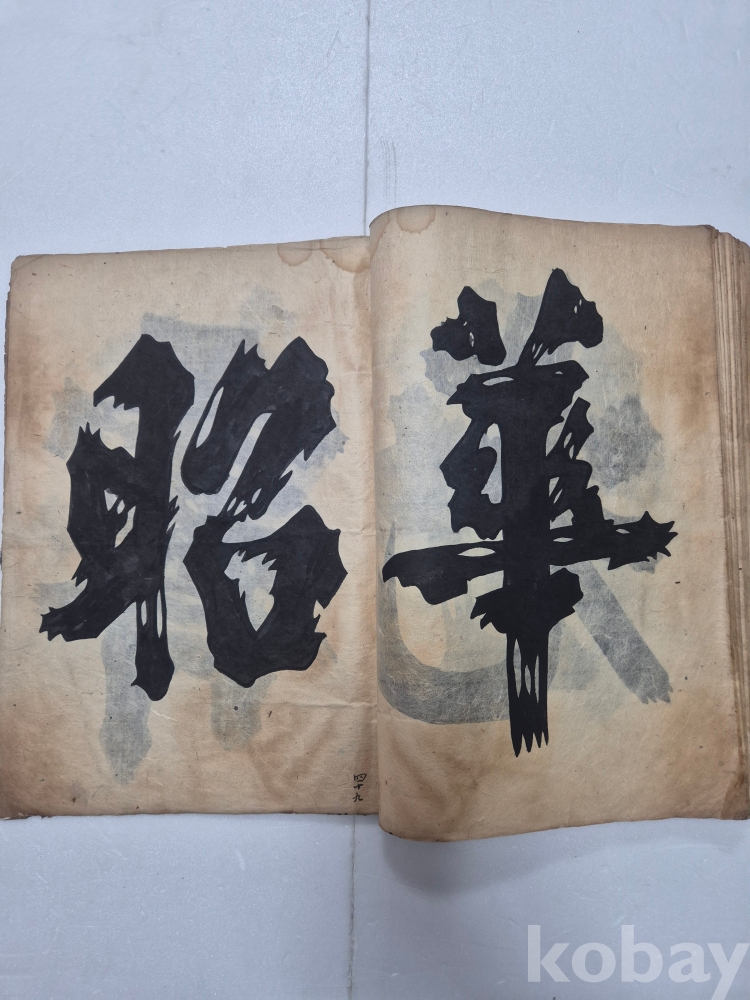 華
昭
四十九
kobay